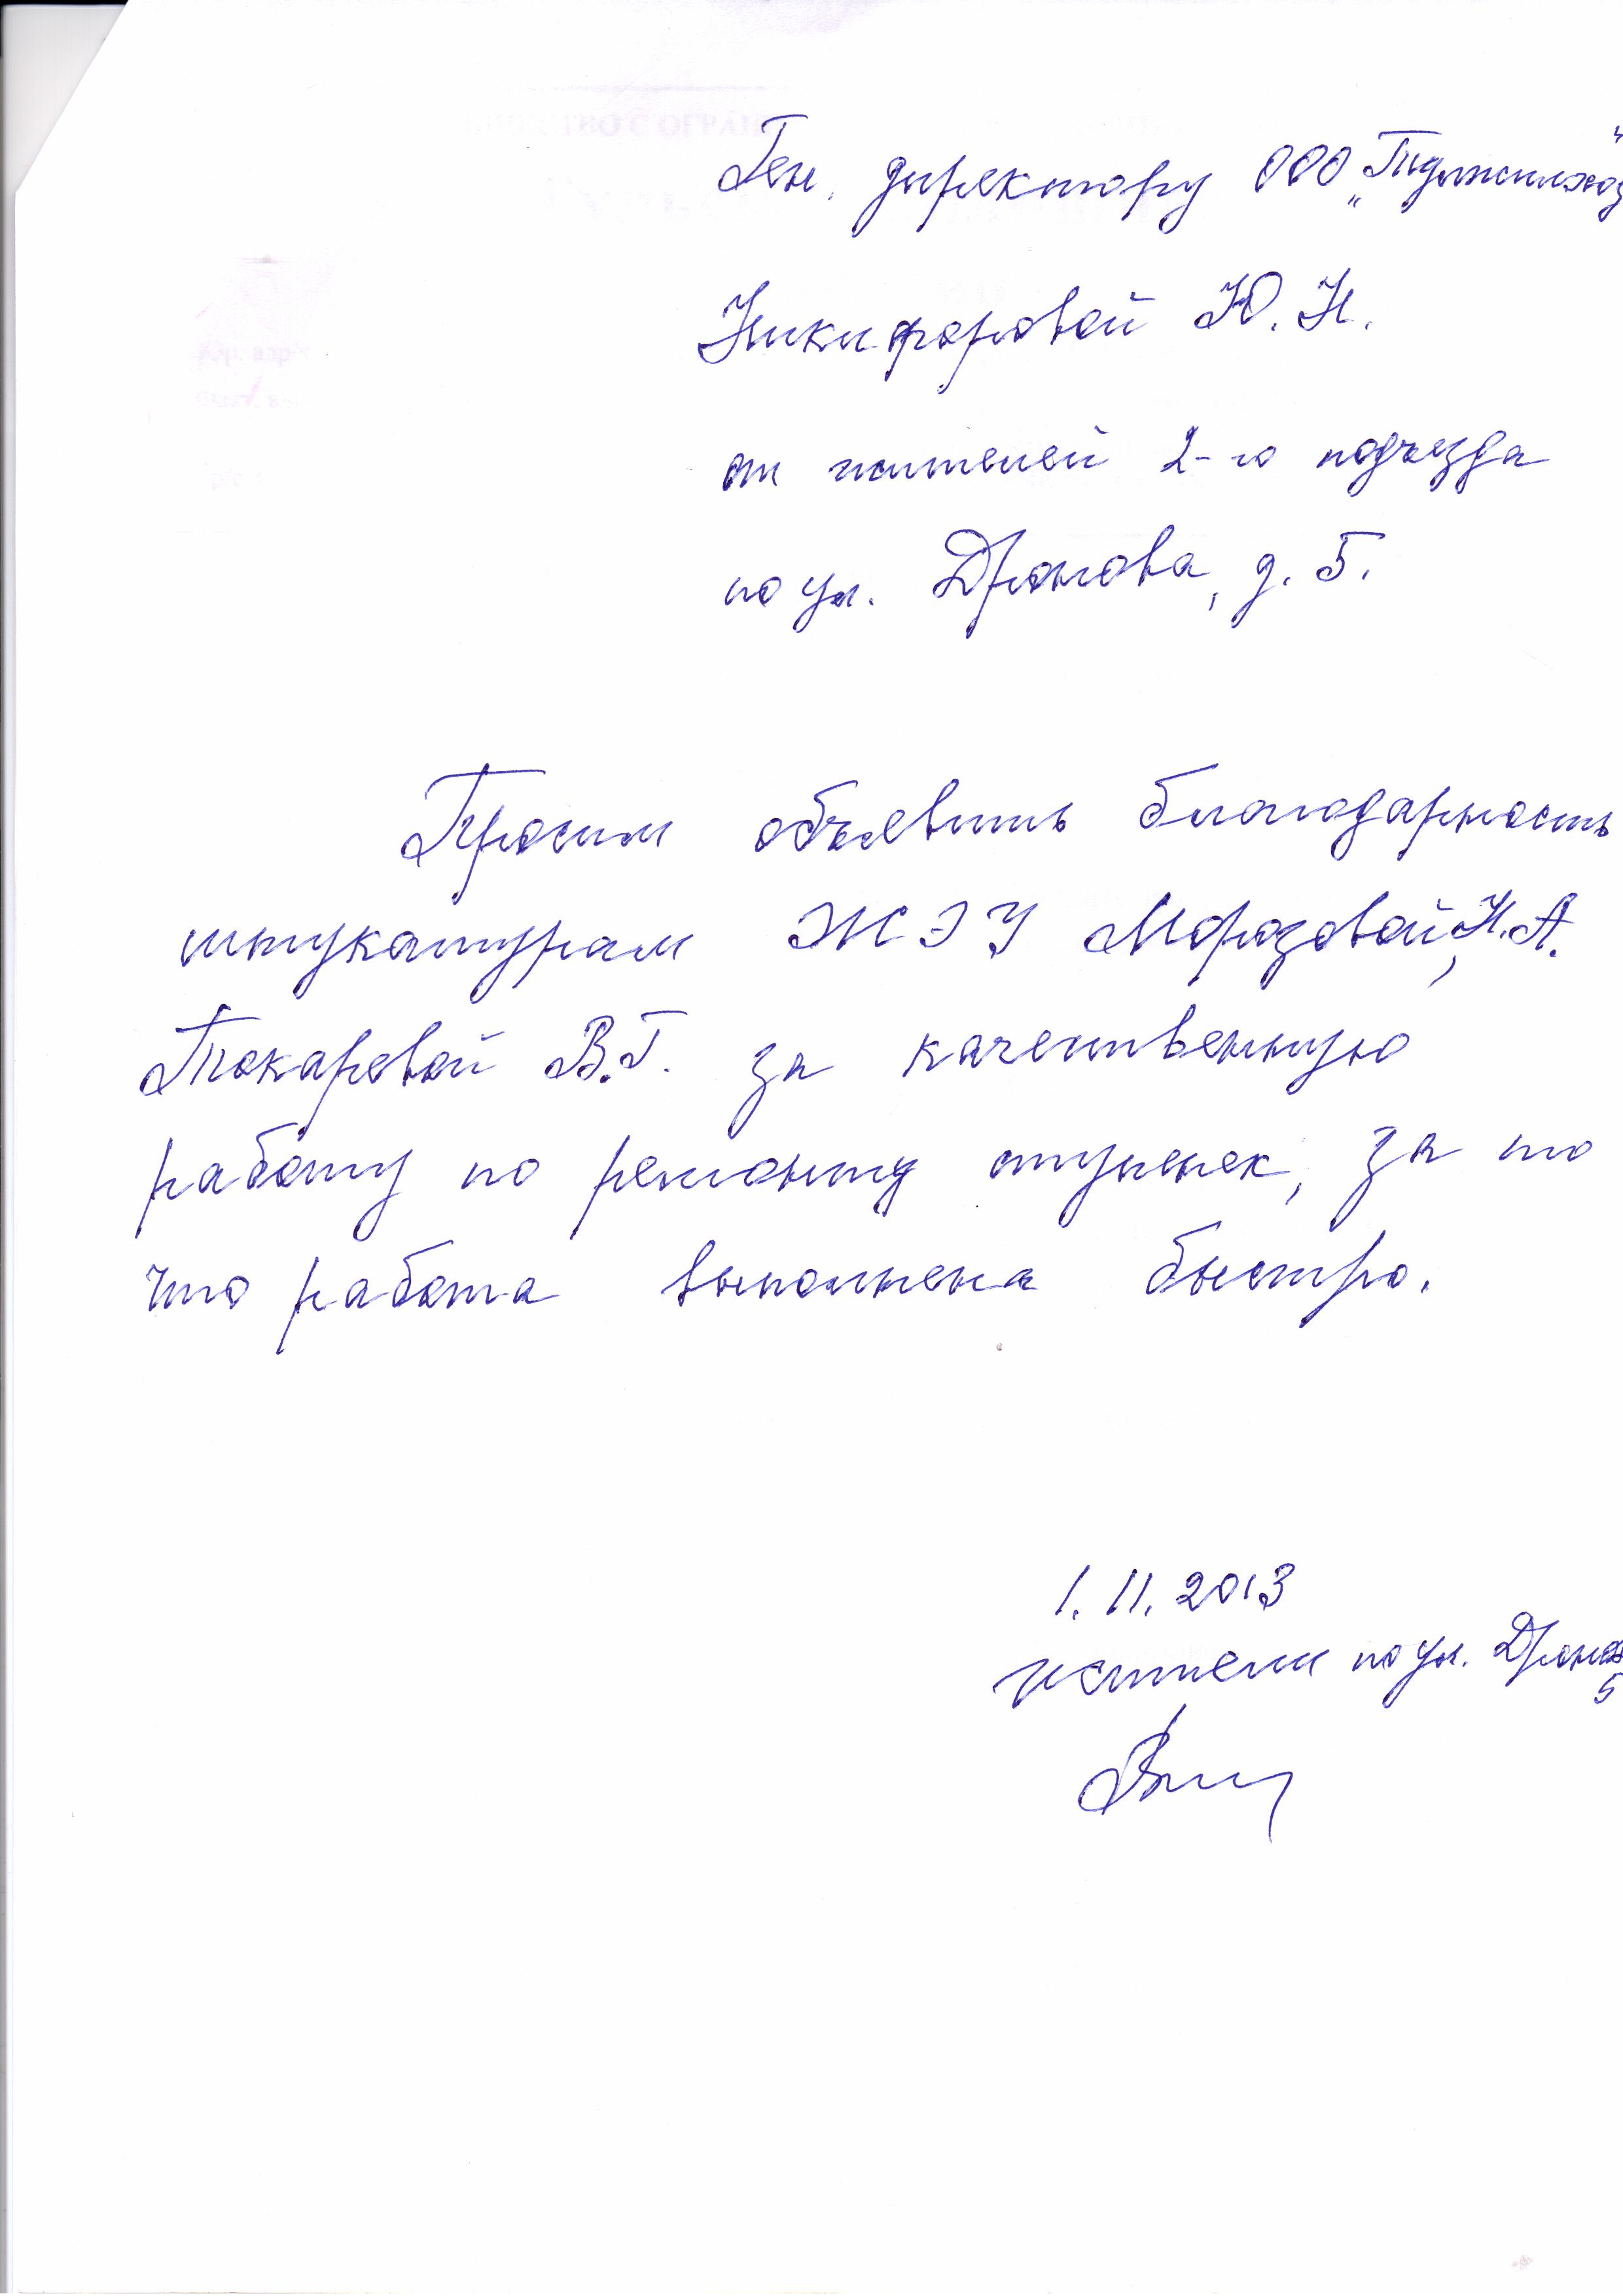 Ген. директору ООО
Никифоровой Ю. Н.
от жителей 2-го подъезда
по ул. Дронова, д. 5.
Просим объявить благодарность
штукатурам ЖЭУ Морозовой Н.А.,
Токаревой В.Г. за качественную
работу по ремонту ступенек, за то
что работа выполнена быстро.
1.11.2013
жители по ул.
5